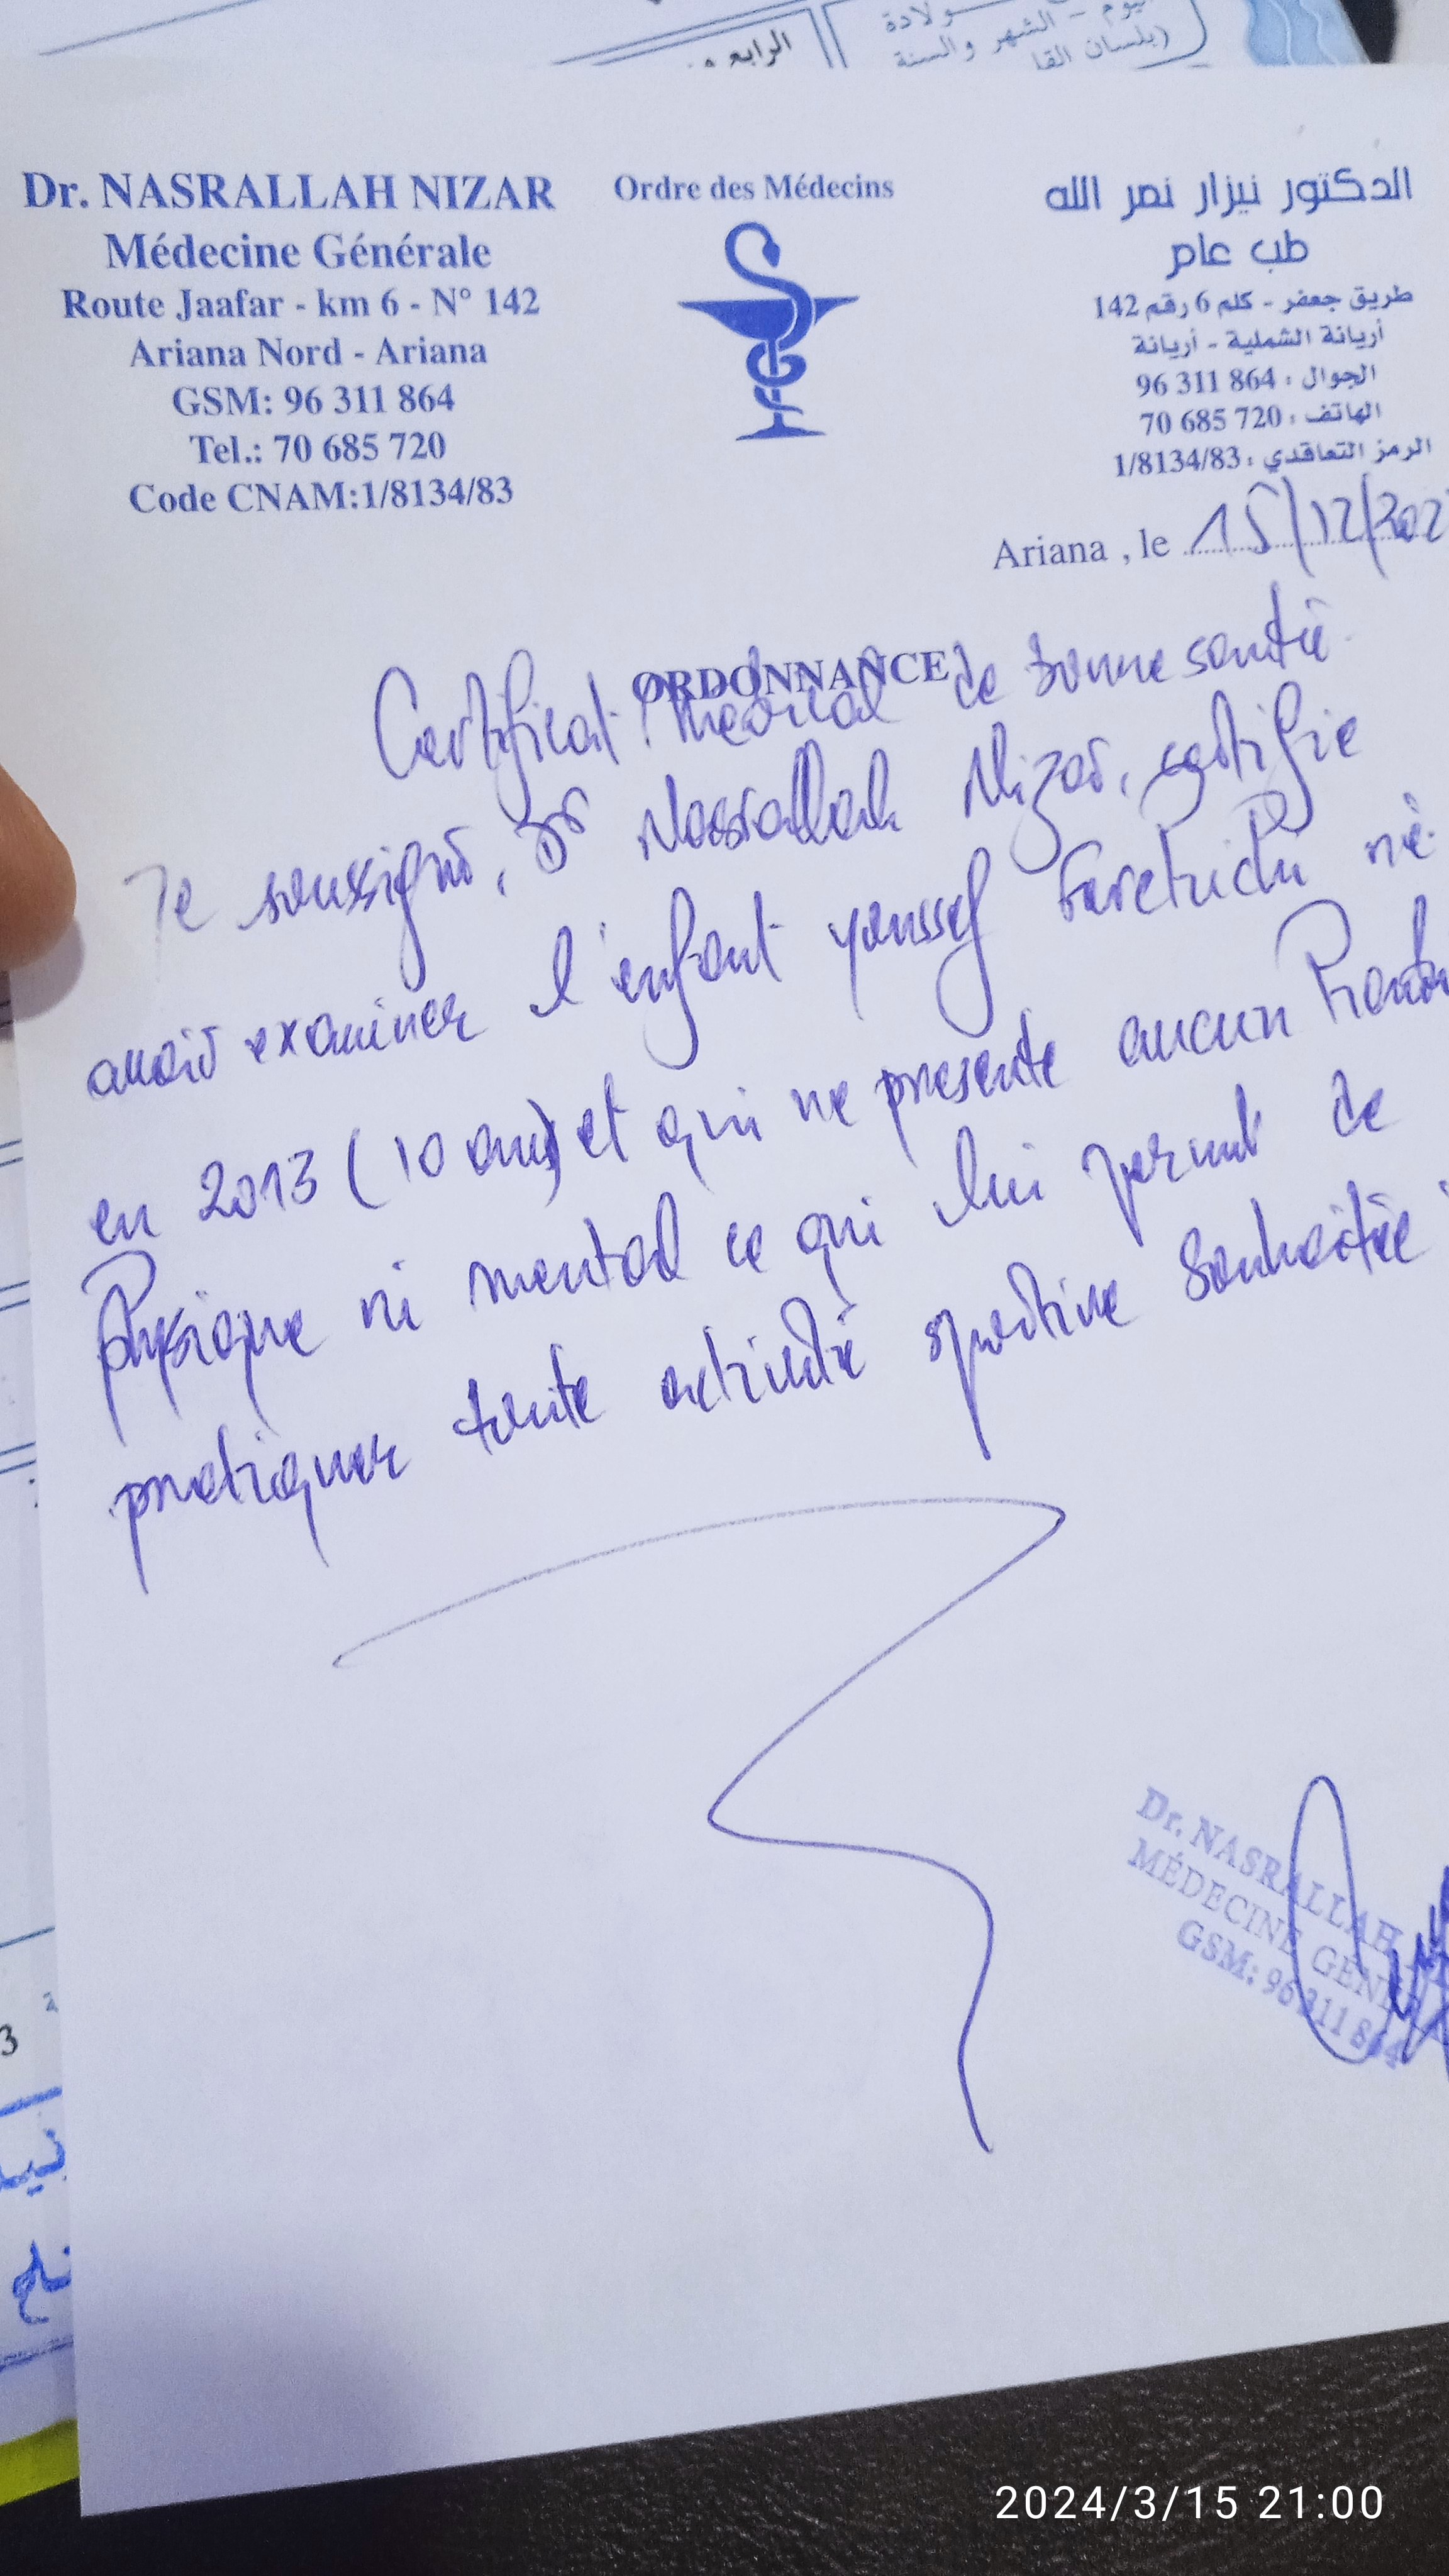 يوم - الشهر والسنة
(بلسان القا
الرابع
Dr. NASRALLAH NIZAR
Médecine Générale
Route Jaafar - km 6 - N° 142
Ariana Nord - Ariana
GSM: 96 311 864
Tel.: 70 685 720
Code CNAM:1/8134/83
Ordre des Médecins
الدكتور نيزار نصر الله
طب عام
طريق جعفر - كلم 6 رقم 142
أريانة الشملية - أريانة
الجوال : 96 311 864
الهاتف : 70 685 720
الرمز التعاقدي : 1/8134/83
Ariana , le 15/12/202
ORDONNANCE
Certificat médical de bonne santé
Je soussigné, Dr Nassrallah Nizar, certifie
avoir examiner l'enfant youssef né
en 2013 (10 ans) et qui ne présente aucun
Physique ni mental ce qui lui permet de
pratiquer toute activité sportive souhaitée
Dr. NASRALLAH
MÉDECINE GÉNÉ
GSM: 96 311 864
3
2024/3/15 21:00